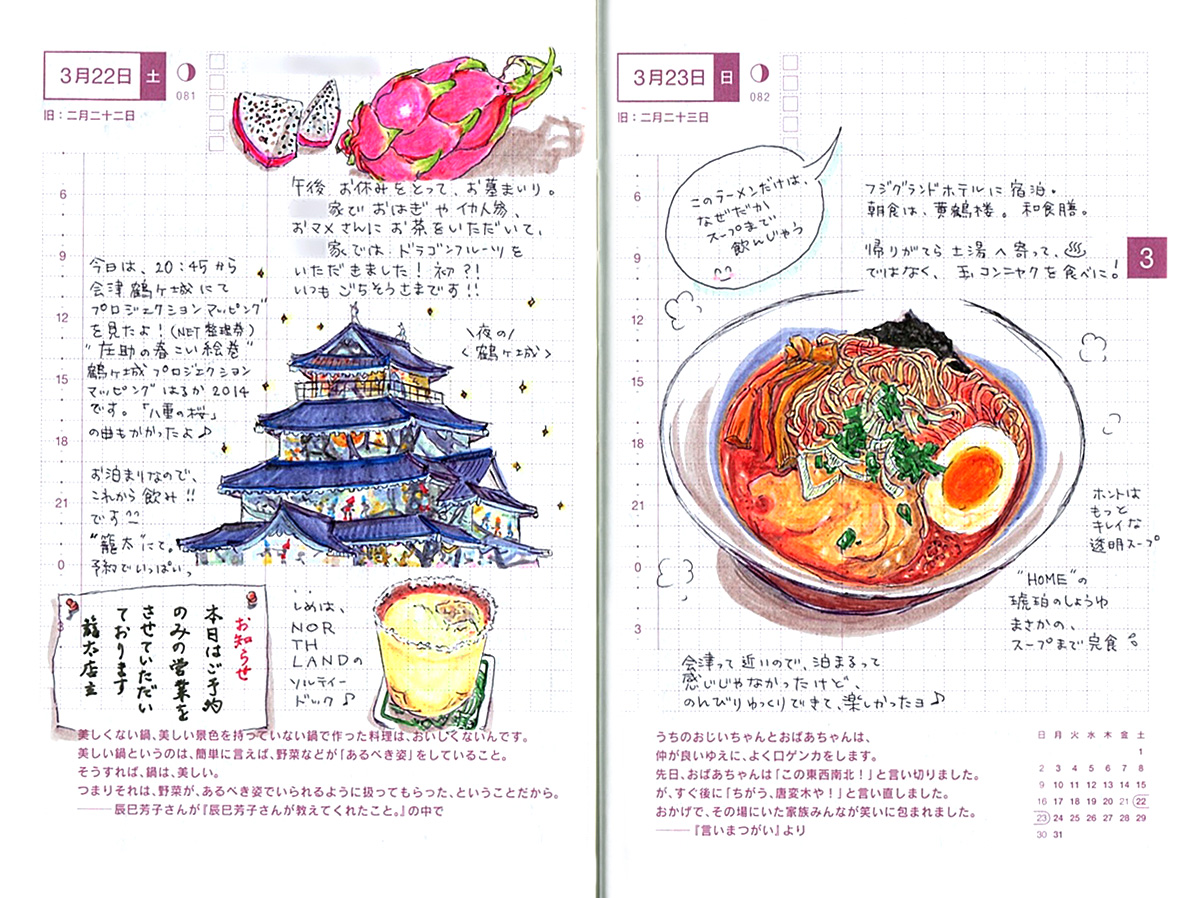 3月22日 土
081
旧：二月二十二日
午後 お休みをとって、お墓まいり。
家で おはぎ や イカ人参、
おマメさんに お茶をいただいて、
家では ドラゴンフルーツを
いただきました！ 初？！
いつも ごちそうさまです！！
6
9
12
15
18
21
0
3
今日は、20：45から
会津 鶴ヶ城 にて
プロジェクションマッピング
を見たよ！（NET整理券）
"庄助の春こい絵巻"
鶴ヶ城プロジェクション
マッピング はるか 2014
です。「八重の桜」
の曲もかかったよ♪
\夜の/
<鶴ヶ城>
お泊まりなので、
これから 飲み!!
です
"籠太"にて。
予約でいっぱいっ
お知らせ
本日はご予約
のみの営業を
させていただい
ております
籠太店主
しめは、
NOR
TH
LANDの
ソルティー
ドック♪
美しくない鍋、美しい景色を持っていない鍋で作った料理は、おいしくないんです。
美しい鍋というのは、簡単に言えば、野菜などが「あるべき姿」をしていること。
そうすれば、鍋は、美しい。
つまりそれは、野菜が、あるべき姿でいられるように扱ってもらった、ということだから。
――辰巳芳子さんが『辰巳芳子さんが教えてくれたこと。』の中で
3月23日 日
082
旧：二月二十三日
このラーメンだけは、
なぜだか
スープまで
飲んじゃう
フジグランドホテルに 宿泊。
朝食は、黄鶴楼。和食膳。
帰りがてら 土湯へ寄って、♨
ではなく、玉コンニャクを食べに！
3
6
9
12
15
18
21
0
3
ホントは
もっと
キレイな
透明スープ
"HOME"の
琥珀のしょうゆ
まさかの、
スープまで完食
会津って 近いので、泊まるって
感じじゃなかったけど、
のんびりゆっくりできて、楽しかったヨ♪
うちのおじいちゃんとおばあちゃんは、
仲が良いゆえに、よく口ゲンカをします。
先日、おばあちゃんは「この東西南北！」と言い切りました。
が、すぐ後に「ちがう、唐変木や！」と言い直しました。
おかげで、その場にいた家族みんなが笑いに包まれました。
――『言いまつがい』より
日 月 火 水 木 金 土
1
2 3 4 5 6 7 8
9 10 11 12 13 14 15
16 17 18 19 20 21 22
23 24 25 26 27 28 29
30 31